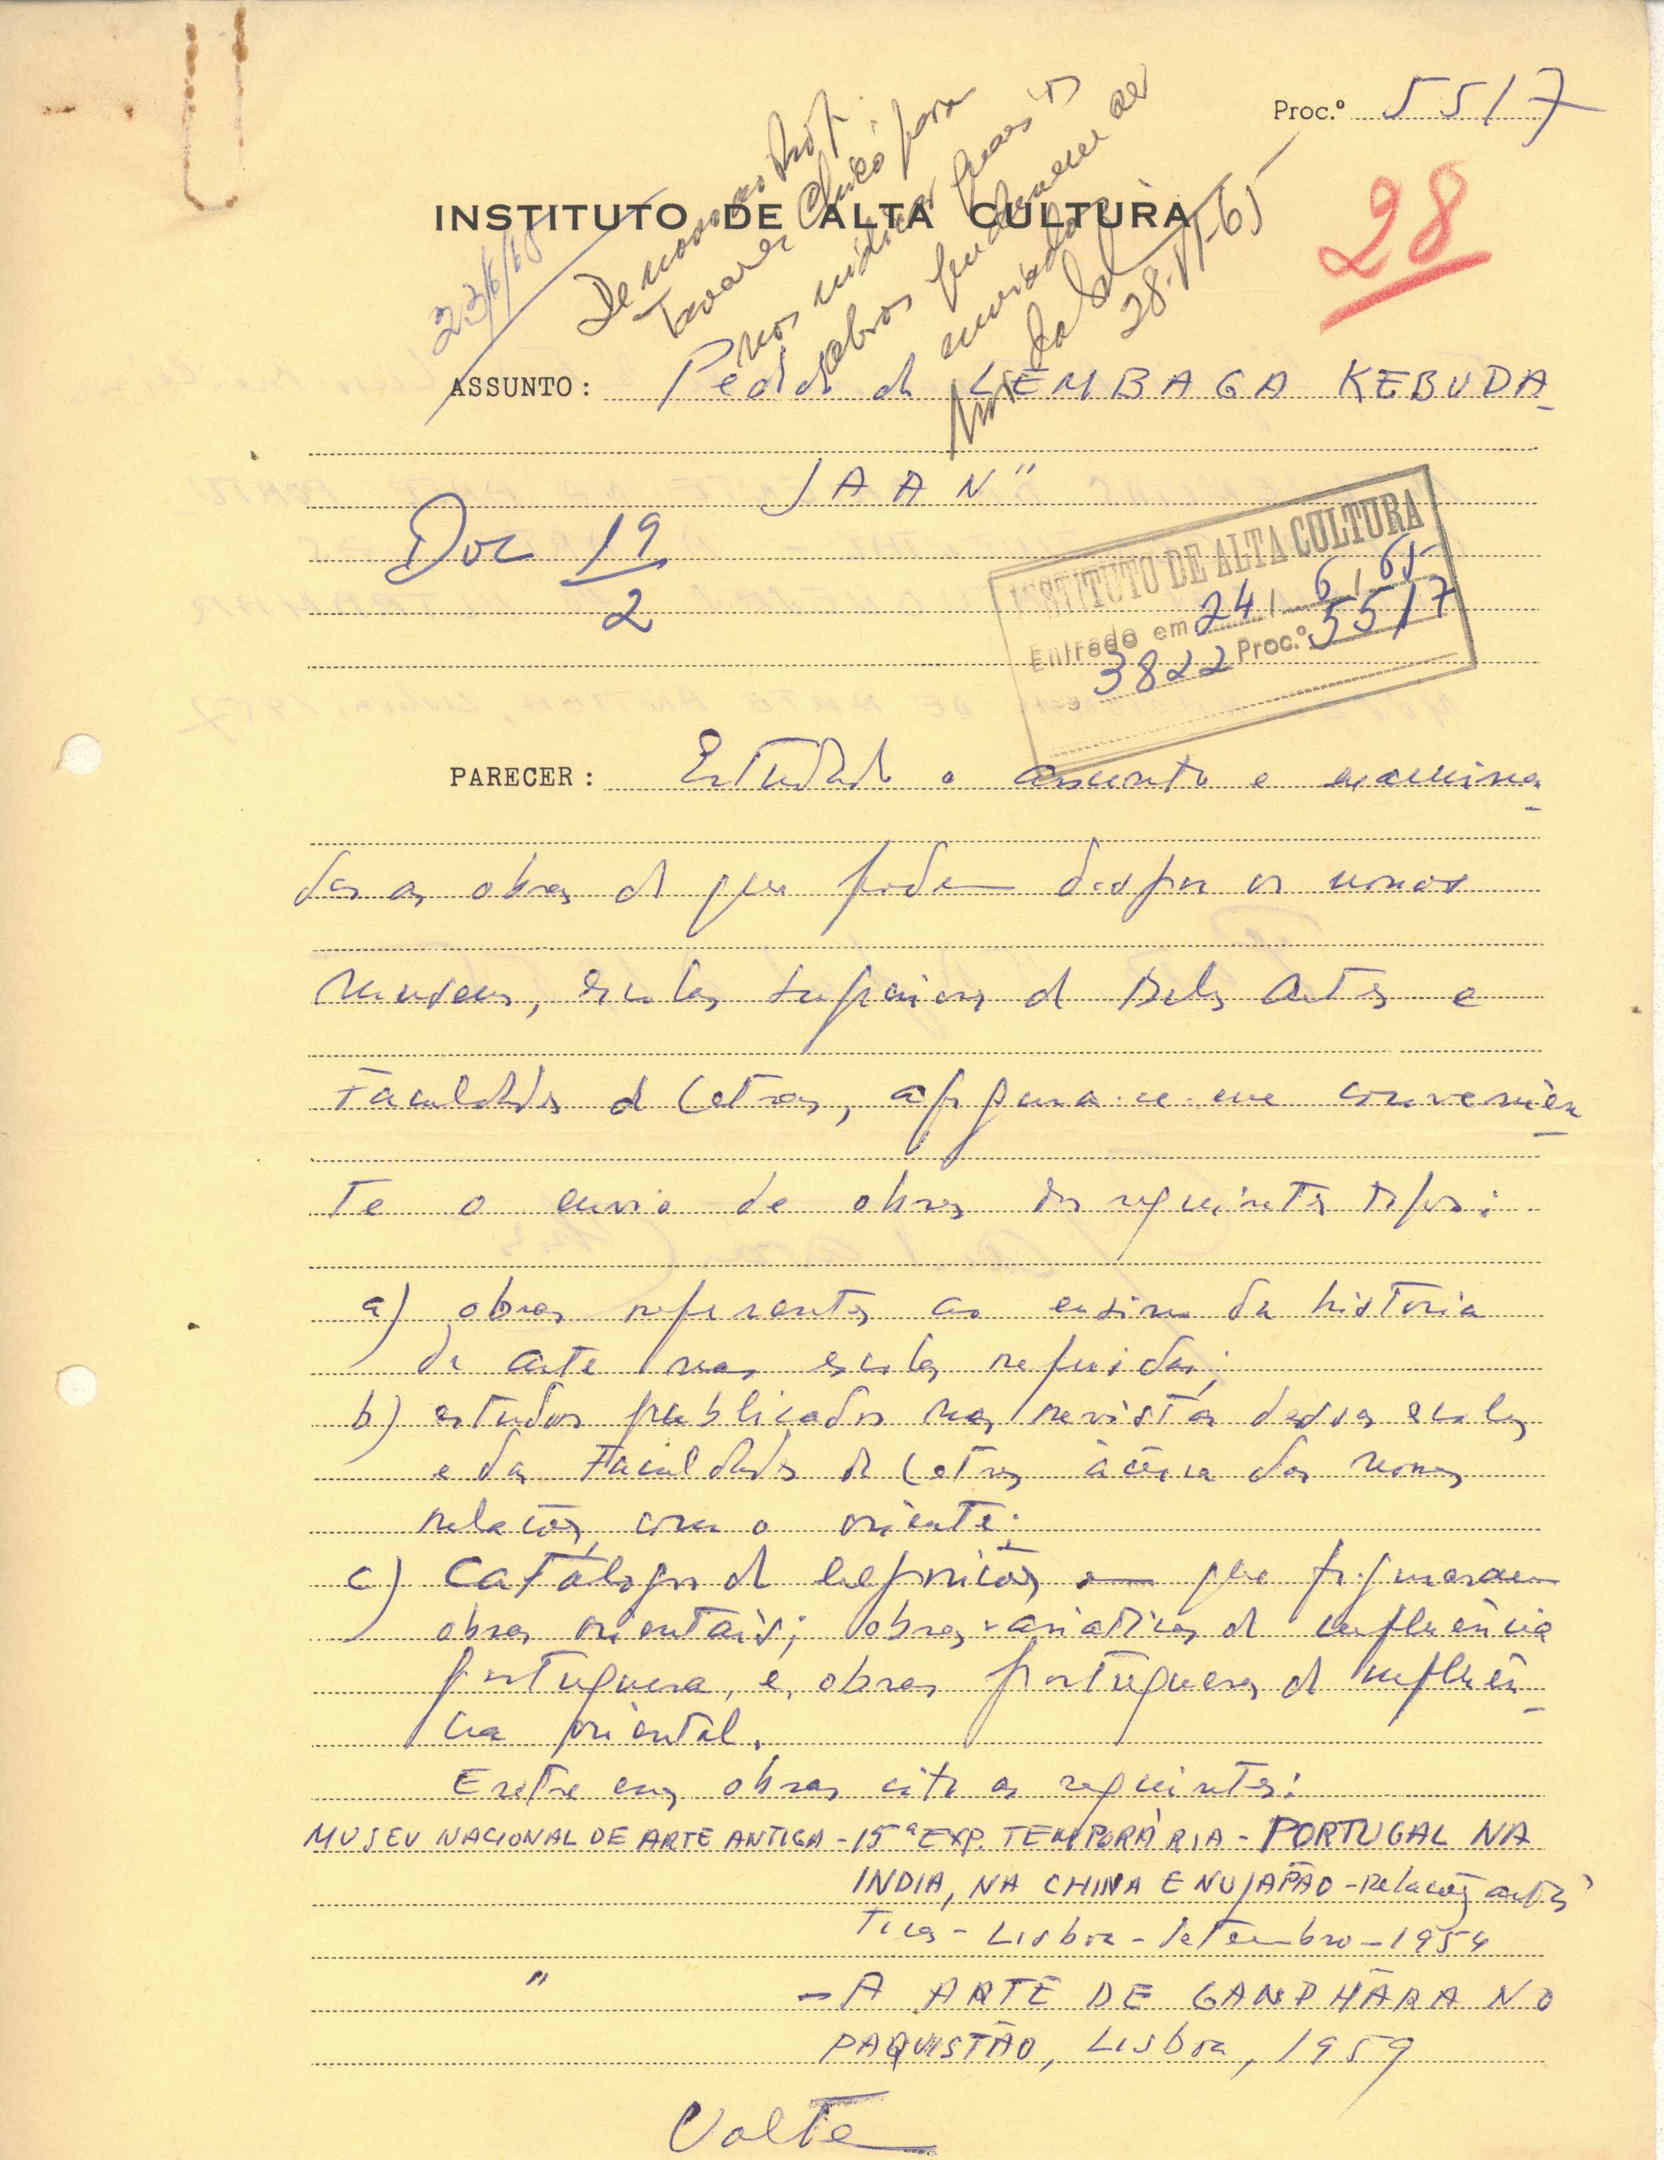 Proc.º 55/7
28
INSTITUTO DE ALTA CULTURA
De novo ao Prof.
Tavares Chicó para
nos indicar quais as
obras que devem ser
enviadas
28-VI-65
23/6/65
ASSUNTO: Pedido de LEMBAGA KEBUDA-
JAAN"
Doc 19/2
INSTITUTO DE ALTA CULTURA
Entrada em 24/6/65
3822 Proc.º 55/7
PARECER: Estudado o assunto e examina-
das as obras de que podem dispor os nossos
museus, escolas superiores de Belas Artes e
Faculdades de Letras, afigura-se-me convenien-
te o envio de obras dos seguintes tipos:
a) obras referentes ao ensino da história
da arte nas escolas referidas;
b) estudos publicados nas revistas dessas escolas
e das Faculdades de Letras àcêrca das nossas
relações com o oriente;
c) Catálogos de exposições em que figuraram
obras orientais; obras asiáticas de influência
portuguesa, e, obras portuguesas de influên-
cia oriental.
Entre essas obras cito as seguintes:
MUSEU NACIONAL DE ARTE ANTIGA - 15ª EXP. TEMPORÁRIA - PORTUGAL NA
INDIA, NA CHINA E NO JAPÃO - Relações artís
ticas - Lisboa - Setembro - 1954
" - A ARTE DE GANDHÃRA NO
PAQUISTÃO, Lisboa, 1959
Volte